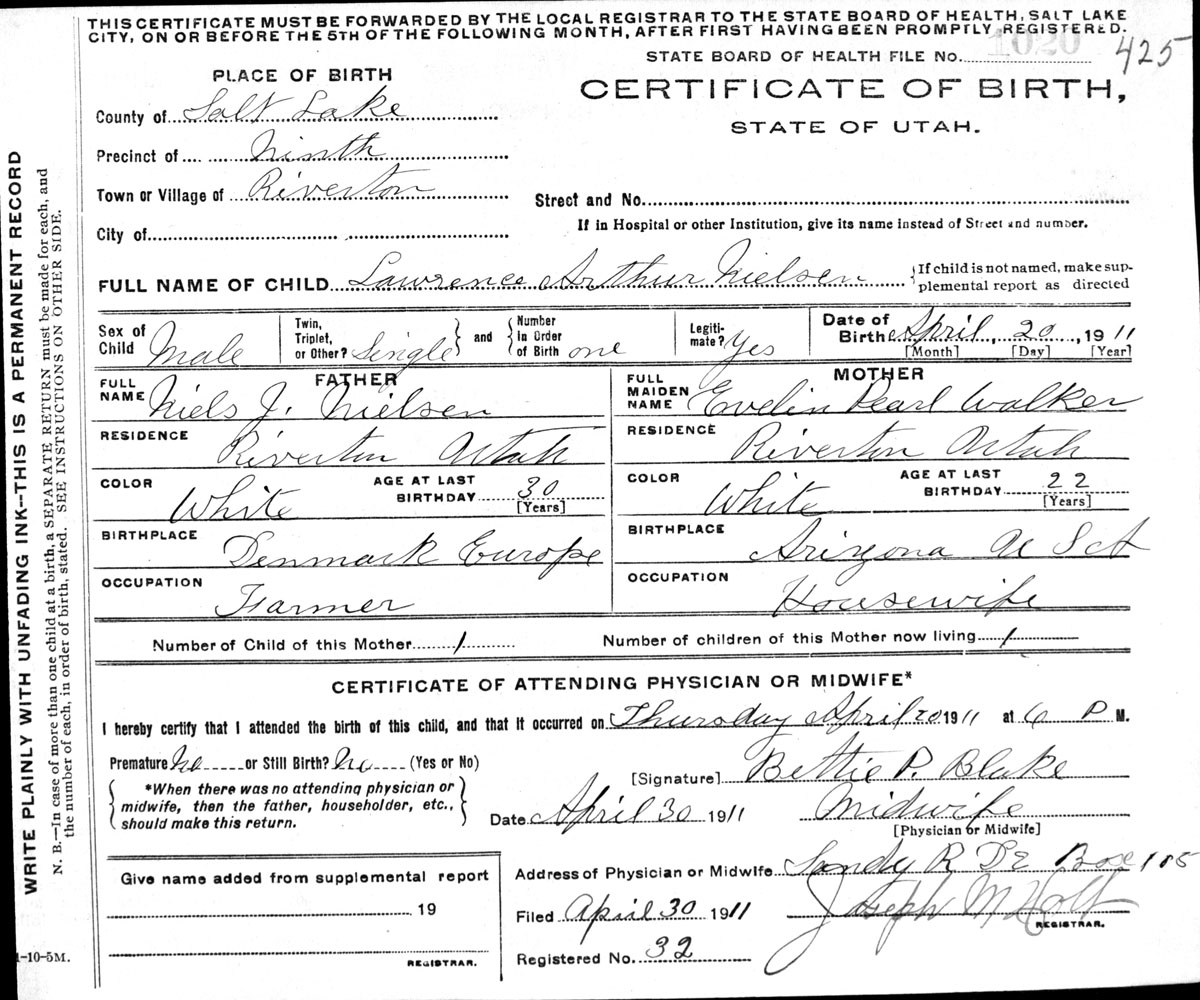 THIS CERTIFICATE MUST BE FORWARDED BY THE LOCAL REGISTRAR TO THE STATE BOARD OF HEALTH, SALT LAKE
CITY, ON OR BEFORE THE 5TH OF THE FOLLOWING MONTH, AFTER FIRST HAVING BEEN PROMPTLY REGISTERED.
STATE BOARD OF HEALTH FILE No. 1020 425
PLACE OF BIRTH
CERTIFICATE OF BIRTH,
STATE OF UTAH.
County of Salt Lake
Precinct of Ninth
Town or Village of Riverton
Street and No.
City of
If in Hospital or other Institution, give its name instead of Street and number.
FULL NAME OF CHILD Lawrence Arthur Nielsen {If child is not named, make sup-
plemental report as directed
Sex of Child Male Twin, Triplet, or Other? Single } and { Number in Order of Birth one Legiti-mate? Yes Date of Birth April, 20, 1911
[Month] [Day] [Year]
FATHER
MOTHER
FULL NAME Niels J. Nielsen
FULL MAIDEN NAME Evelin Pearl Walker
RESIDENCE Riverton Utah
RESIDENCE Riverton Utah
COLOR White AGE AT LAST BIRTHDAY 30 [Years]
COLOR White AGE AT LAST BIRTHDAY 22 [Years]
BIRTHPLACE Denmark Europe
BIRTHPLACE Arizona U S A
OCCUPATION Farmer
OCCUPATION Housewife
Number of Child of this Mother 1 Number of children of this Mother now living 1
CERTIFICATE OF ATTENDING PHYSICIAN OR MIDWIFE*
I hereby certify that I attended the birth of this child, and that it occurred on Thursday April 20 1911 at 6 P M.
Premature No or Still Birth? No (Yes or No)
[Signature] Bettie P. Blake
{*When there was no attending physician or
midwife, then the father, householder, etc.,
should make this return.}
Date April 30 1911 Midwife
[Physician or Midwife]
Address of Physician or Midwife Sandy R Box 115
Give name added from supplemental report
19
REGISTRAR.
Filed April 30 1911 Joseph M Holt
REGISTRAR.
Registered No. 32
1-10-5M.
WRITE PLAINLY WITH UNFADING INK--THIS IS A PERMANENT RECORD
N. B.—In case of more than one child at a birth, a SEPARATE RETURN must be made for each, and
the number of each, in order of birth, stated. SEE INSTRUCTIONS ON OTHER SIDE.